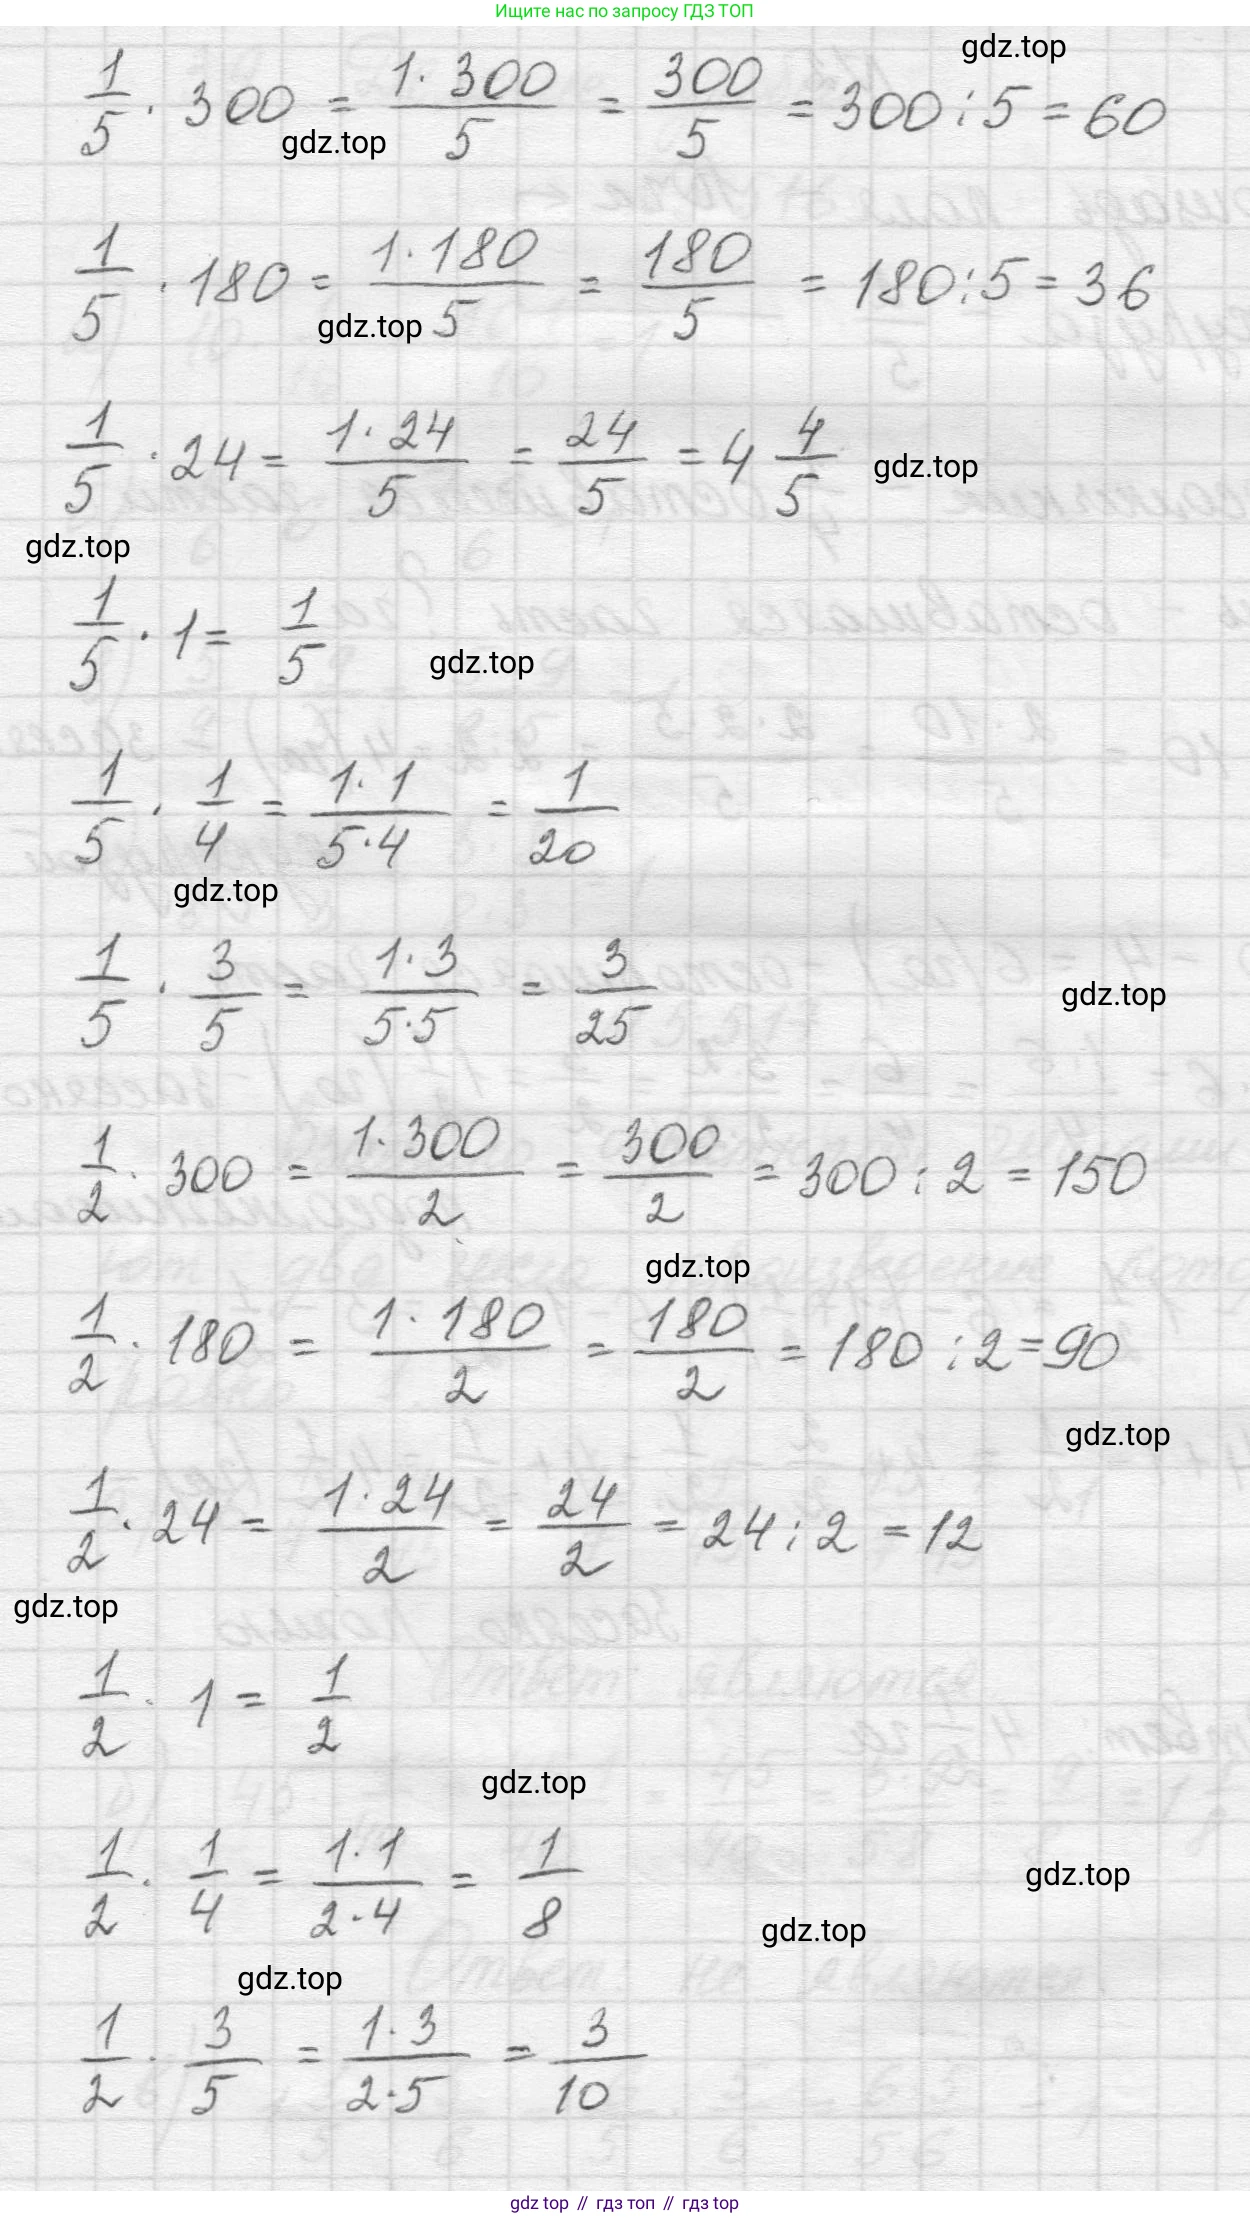 Ищите нас по запросу ГДЗ ТОП
gdz.top
1/5 · 300 = 1·300/5 = 300/5 = 300:5 = 60
gdz.top
1/5 · 180 = 1·180/5 = 180/5 = 180:5 = 36
gdz.top
1/5 · 24 = 1·24/5 = 24/5 = 4 4/5
gdz.top
gdz.top
1/5 · 1 = 1/5
gdz.top
1/5 · 1/4 = 1·1/5·4 = 1/20
gdz.top
1/5 · 3/5 = 1·3/5·5 = 3/25
gdz.top
1/2 · 300 = 1·300/2 = 300/2 = 300:2 = 150
gdz.top
1/2 · 180 = 1·180/2 = 180/2 = 180:2 = 90
gdz.top
1/2 · 24 = 1·24/2 = 24/2 = 24:2 = 12
gdz.top
1/2 · 1 = 1/2
gdz.top
1/2 · 1/4 = 1·1/2·4 = 1/8
gdz.top
gdz.top
gdz.top
1/2 · 3/5 = 1·3/2·5 = 3/10
gdz top // гдз топ // gdz top